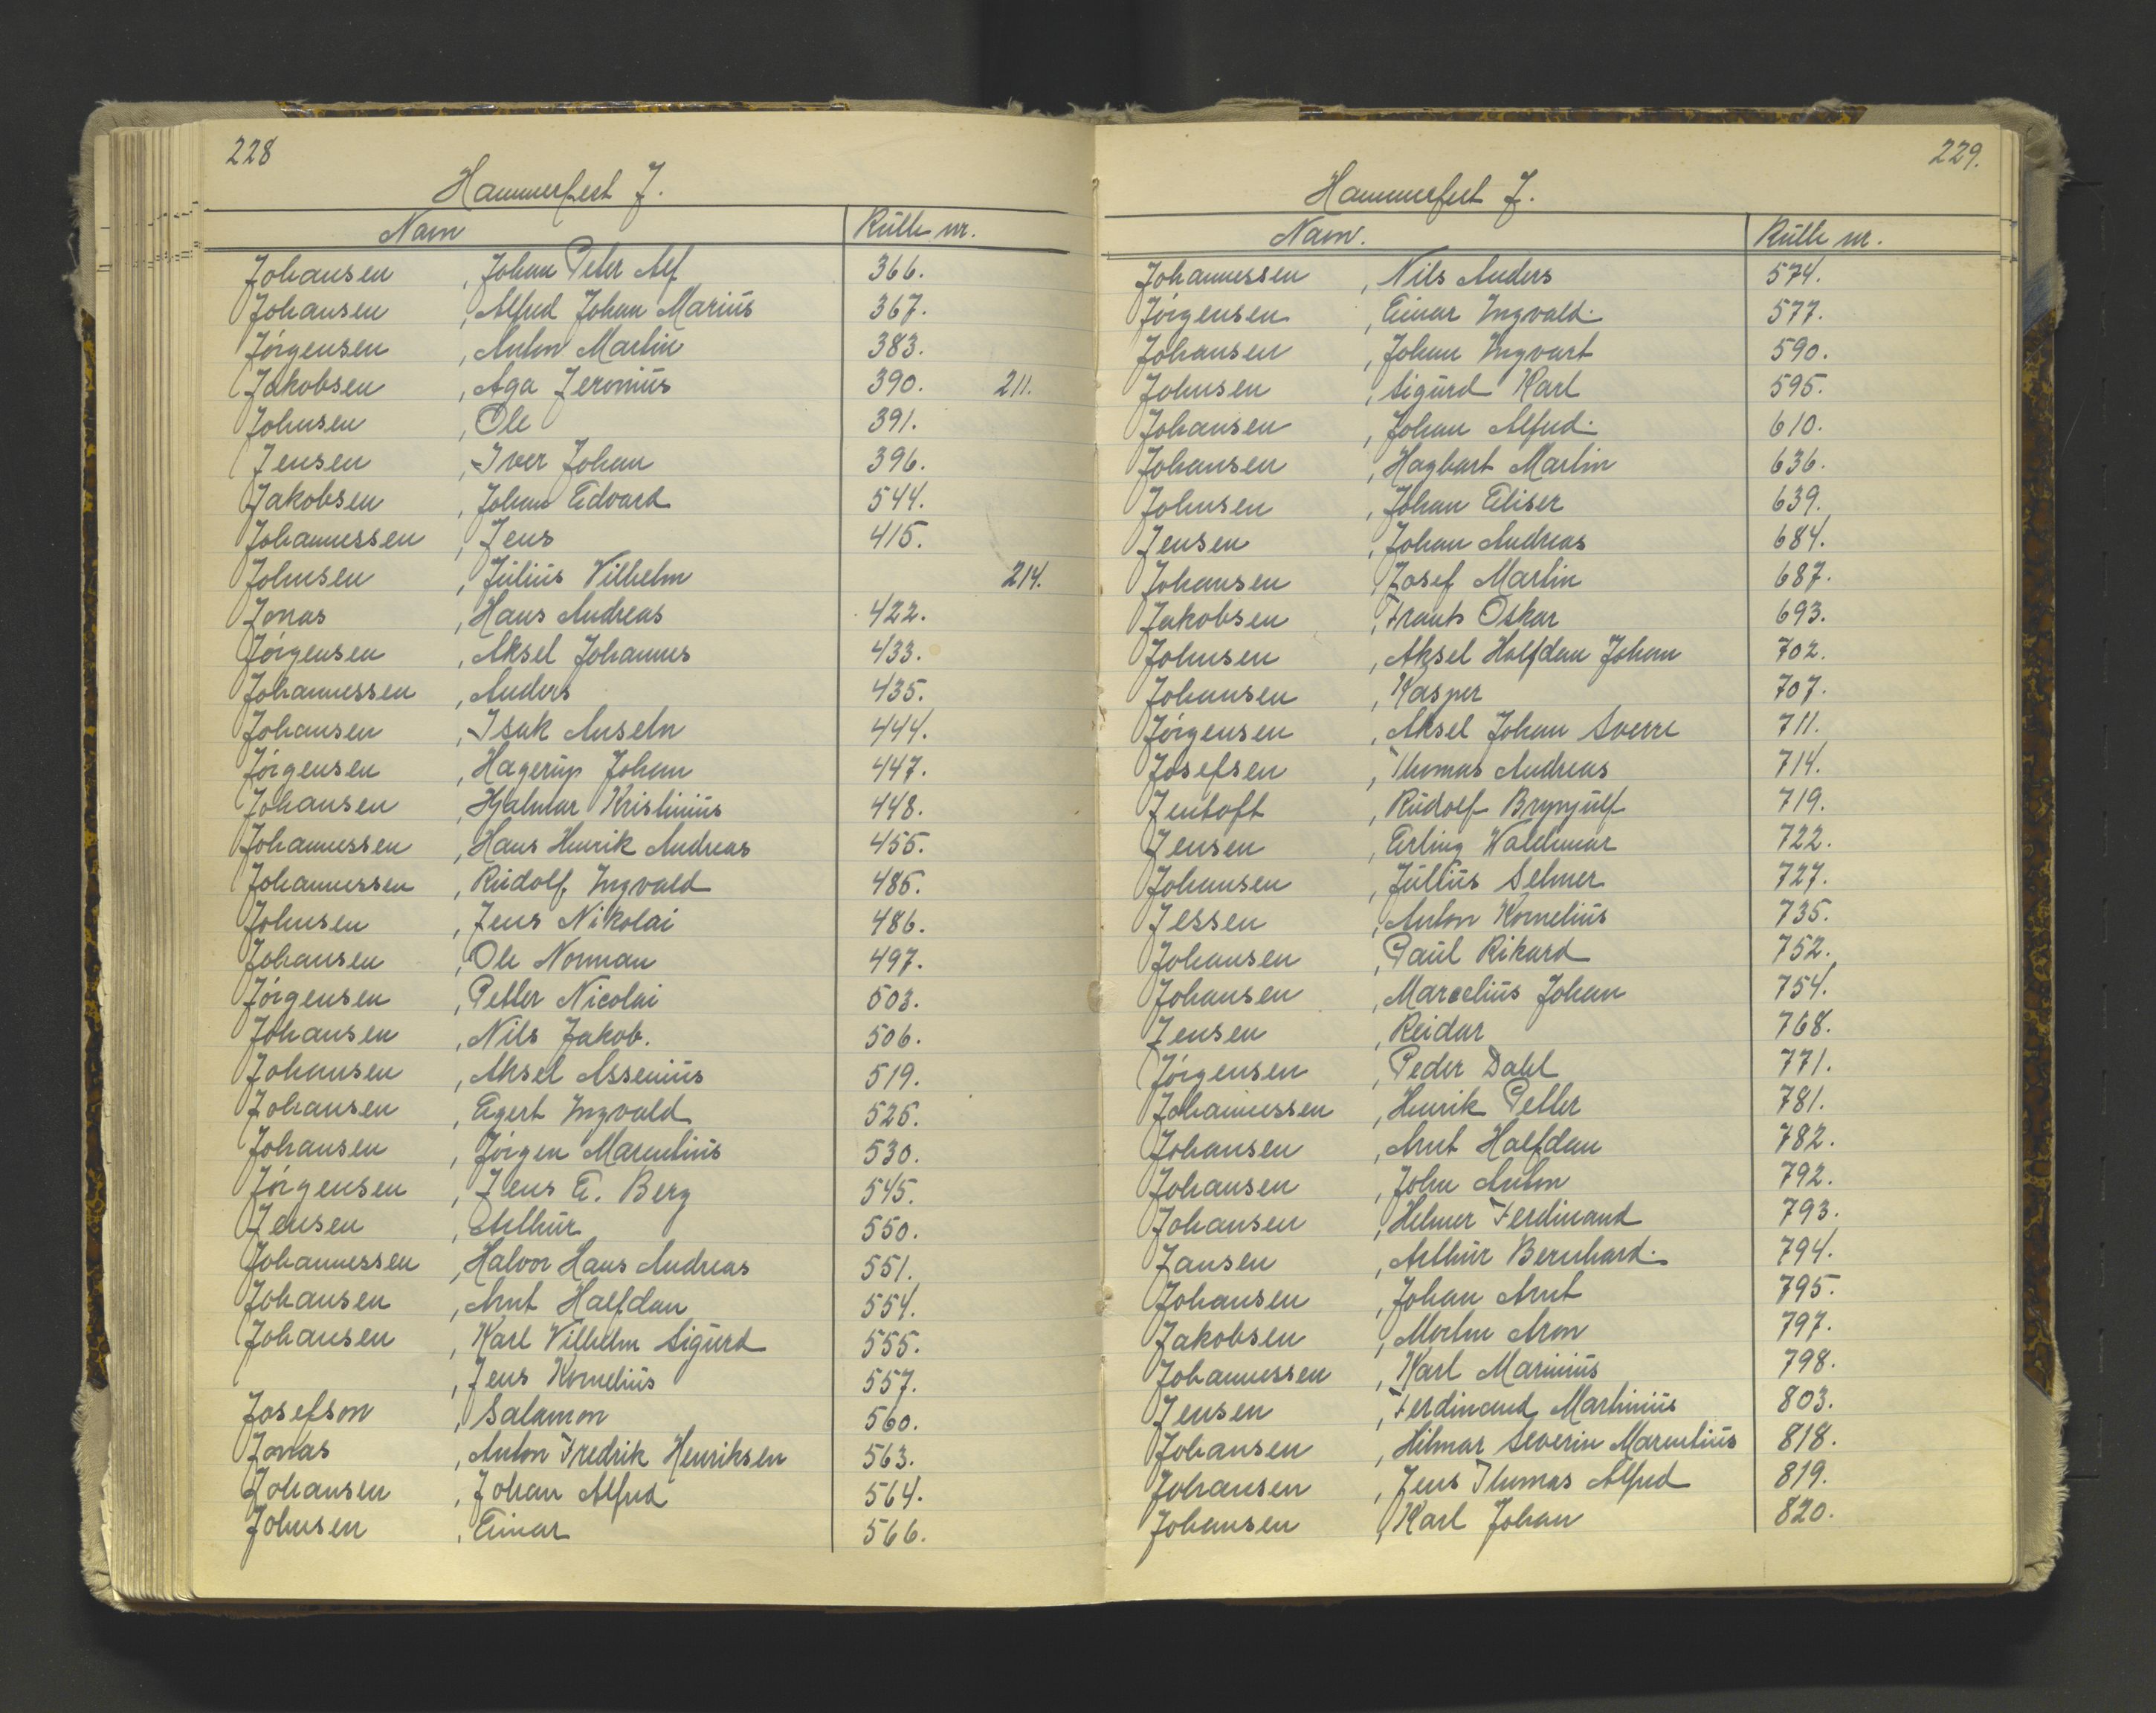 228
Hammerfest J.
Navn Rulle nr.
Johansen , Johan Peter Alf 366.
Johansen , Alfred Johan Marius 367.
Jørgensen , Anton Martin 383.
Jakobsen , Aga Jeronius 390. 211.
Johnsen , Ole 391.
Jensen , Iver Johan 396.
Jakobsen , Johan Edvard 544.
Johannessen , Jens 415.
Johnsen , Julius Vilhelm 214.
Jonas , Hans Andreas 422.
Jørgensen , Aksel Johannes 433.
Johannessen , Anders 435.
Johansen , Isak Anseln 444.
Jørgensen , Hagerup Johan 447.
Johansen , Hjalmar Kristinius 448.
Johannessen , Hans Henrik Andreas 455.
Johannessen , Rudolf Ingvald 485.
Johnsen , Jens Nikolai 486.
Johansen , Ole Norman 497.
Jørgensen , Petter Nicolai 503.
Johansen , Nils Jakob. 506.
Johansen , Aksel Assenius 519.
Johansen , Egert Ingvald 525.
Johansen , Jørgen Marentius 530.
Jørgensen , Jens E. Berg 545.
Jensen , Arthur 550.
Johannessen , Halvor Hans Andreas 551.
Johansen , Arnt Halfdan 554.
Johansen , Karl Vilhelm Sigurd 555.
, Jens Kornelius 557.
Josefson , Salamon 560.
Jonas , Anton Fredrik Henriksen 563.
Johansen , Johan Alfred 564.
Johnsen , Einar 566.
229.
Hammerfest J.
Navn. Rulle nr.
Johannessen , Nils Anders 574.
Jørgensen , Einar Ingvald. 577.
Johansen , Johan Ingvart 590.
Johnsen , Sigurd Karl 595.
Johansen , Johan Alfred. 610.
Johansen , Hagbart Martin 636.
Johnsen , Johan Eliser 639.
Jensen , Johan Andreas 684.
Johansen , Josef Martin 687.
Jakobsen , Frants Oskar 693.
Johnsen , Aksel Halfdan Johan 702.
Johansen , Kasper 707.
Jørgensen , Aksel Johan Sverre 711.
Josefsen , Thomas Andreas 714.
Jentoft , Rudolf Brynjulf 719.
Jensen , Erling Waldemar 722.
Johansen , Julius Selmer 727.
Jessen , Anton Kornelius 735.
Johansen , Paul Rikard 752.
Johansen , Marselius Johan 754.
Jensen , Reidar 768.
Jørgensen , Peder Dahl 771.
Johannessen , Henrik Petter 781.
Johansen , Arnt Halfdan 782.
Johansen , John Anton 792.
Johansen , Helmer Ferdinand 793.
Jansen , Arthur Bernhard. 794.
Johansen , Johan Arnt 795.
Jakobsen , Aron 797.
Johannessen , Karl Marinius 798.
Jensen , Ferdinand Martinius 803.
Johansen , Hilmar Severin Marentius 818.
Johansen , Jens Thomas Alfred 819.
Johansen , Karl Johan 820.